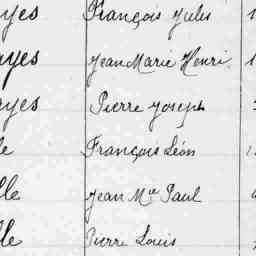 yes François Jules 1
ayes Jean Marie Henri 1
ayes Pierre Joseph
le François Léon
lle Jean Mie Paul
lle Pierre Louis